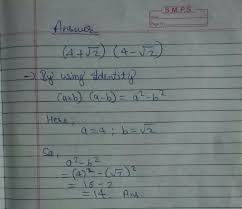 S.M.P.S.
Answer
(4+√2) (4-√2)
→ By using Identity
(a+b) (a-b) = a²-b²
Here,
a=4 ; b=√2
So,
a²-b²
= (4)² - (√2)²
= 16 - 2
= 14 Ans